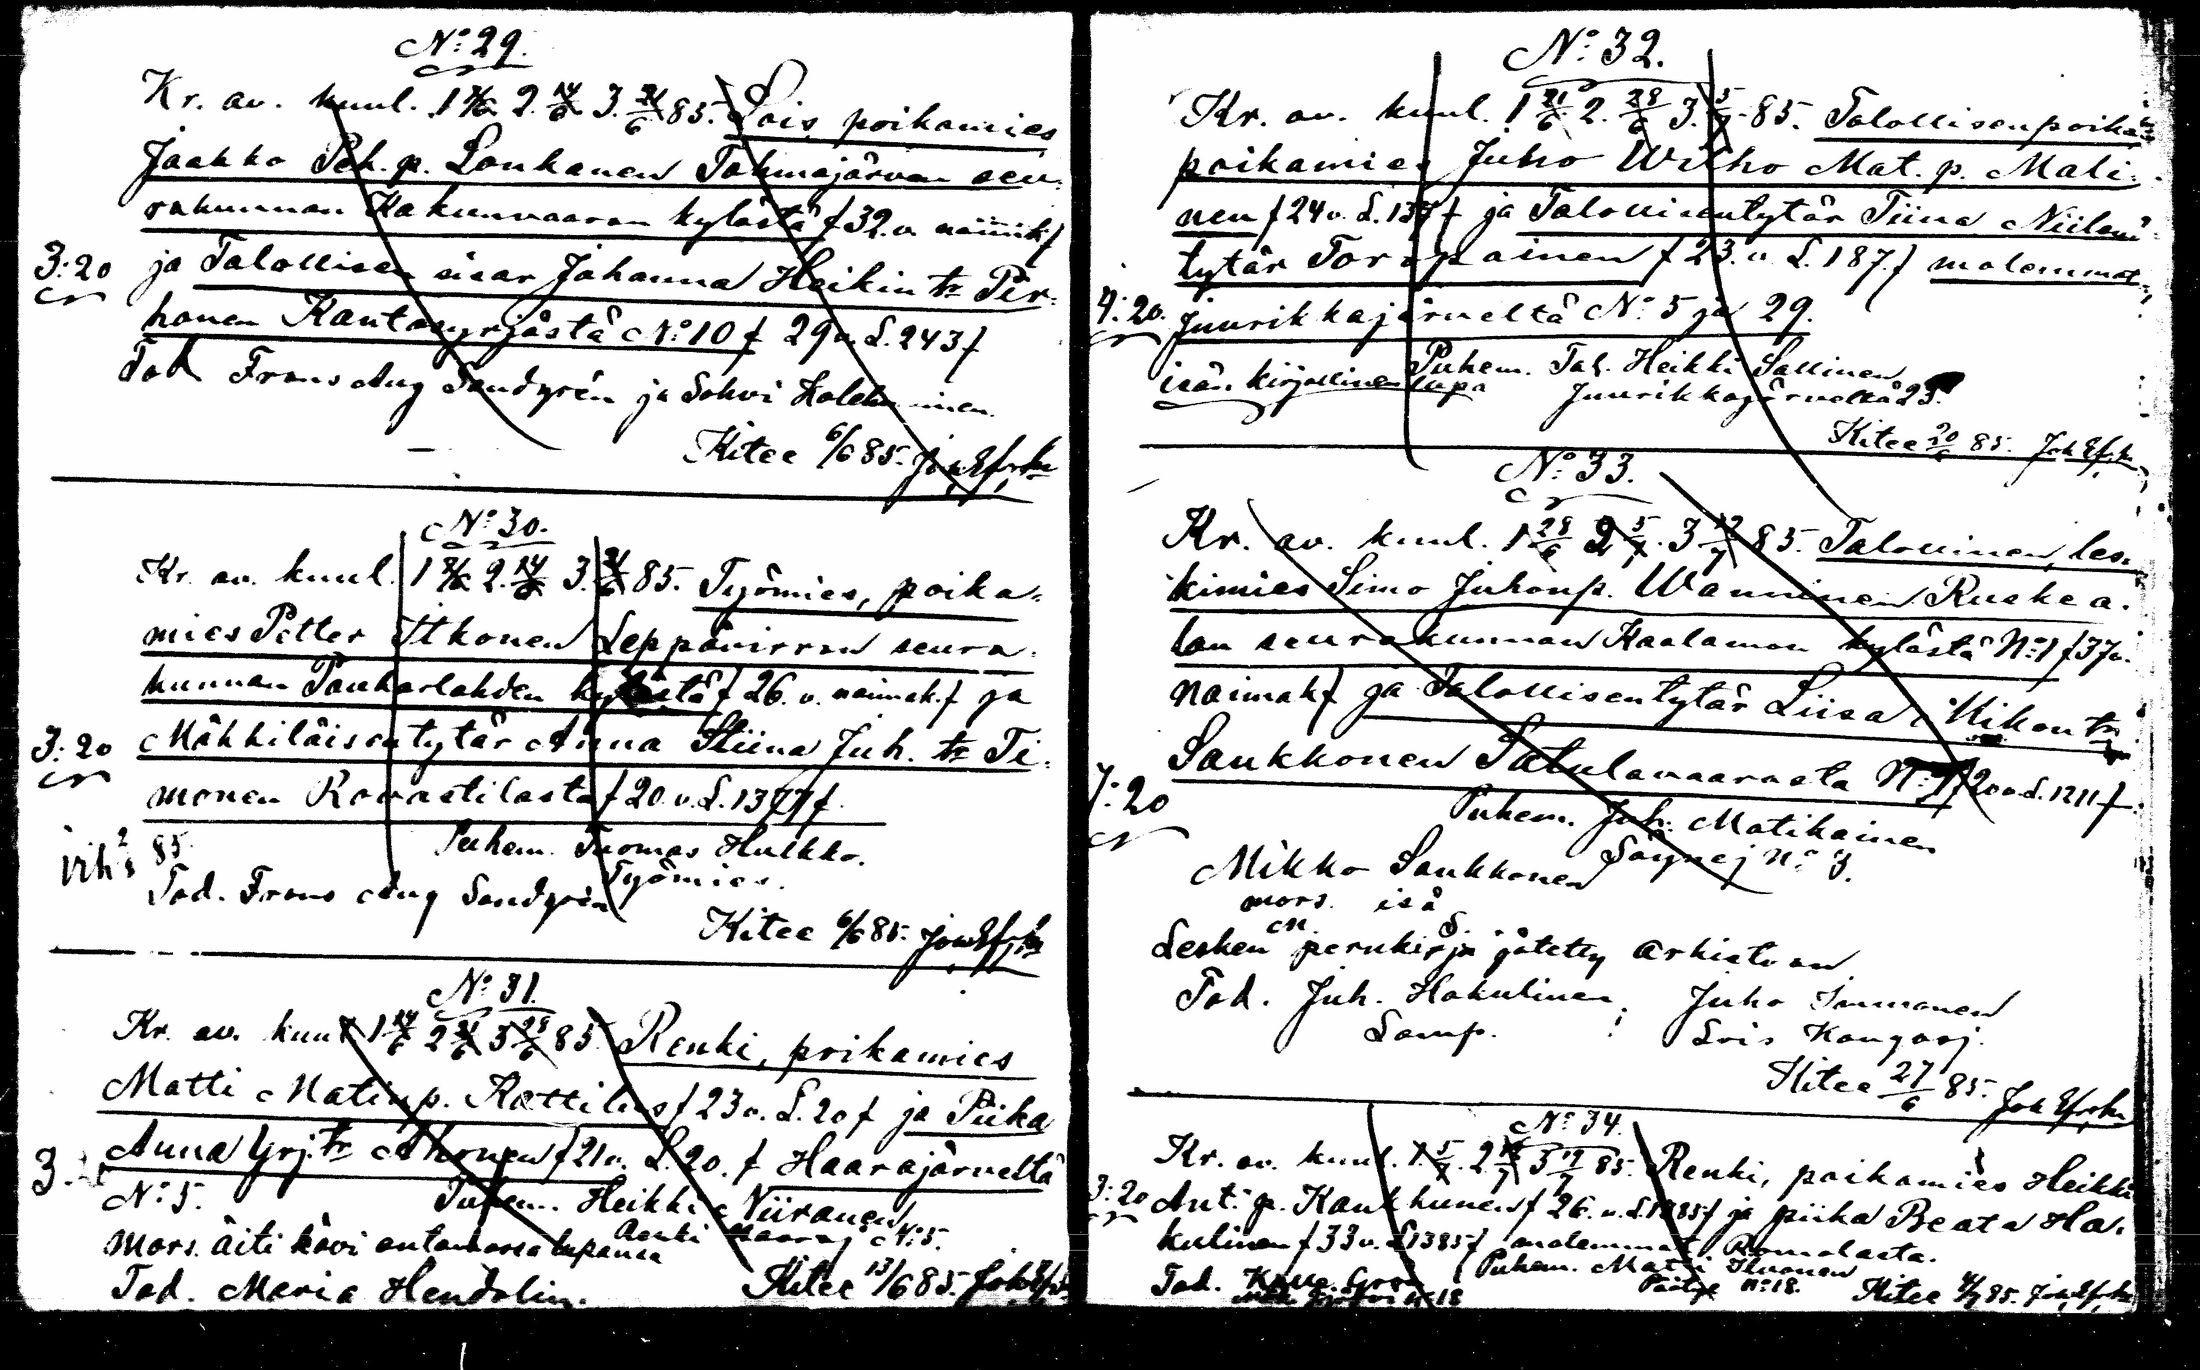 No: 29.
Kr. av. kuul. 1 7/6 2. 14/6 3. 21/6 85. Lois poikamies
Jaakko Pek. p. Loukanen Tohmajärven seu-
rakunnan Kakunvaaran kylästä f 32. v. naimk. f
3:20 ja Talollisen sisar Johanna Heikin tr Pir-
honen Kantosyrjästä No: 10 f 29 v. L. 243 f
Tod Frans Aug Sandgrén ja Sohvi Holek inen
Kitee 6/6 85.
No: 30.
Kr. av. kuul. 1 7/6 2. 14/6 3. 21/6 85. Työmies, poika-
mies Petter Itkonen Leppävirran seura-
kunnan Paukarlahden kylästä f 26. v. naimak. f ja
3:20 Mäkkiläisen tytär Anna Stiina Juh. tr Ti-
monen Rovastilasta f 20. v. L. 1377 f.
Puhem. Tuomas Hulkko.
Työmies.
Tod. Frans Aug Sandgrén
Kitee 6/6 85.
No: 31.
Kr. av. kuul 1 14/6 2 21/6 3 28/6 85. Renki, poikamies
Matti Matinp. Rattilus f 23 v. L. 20 f ja Piika
Anna Yrj. tr Ahonen f 21 v. L. 20. f Haarajärveltä
No: 5. Puhem. Heikki Niiranen
Renki Haaraj No: 5.
mors. äiti kävi antamassa lupansa
Tod. Maria Hendolin.
Kitee 13/6 85.
No: 32.
Kr. av. kuul. 1 21/6 2. 28/6 3. 5/7 85. Talollisenpoika
poikamies Juho Wilho Mat. p. Mali-
nen f 24 v. L. 137 f ja Talollisentytär Tiina Niilon-
tytär Torppainen f 23. v. L. 187. f molemmat
4:20. Juurikkajärveltä No: 5 ja 29.
Puhem. Tal. Heikki Sallinen
isän kirjallinen lupa Juurikkajärveltä 23.
Kitee 20/6 85.
No: 33.
Kr. av. kuul. 1 28/6 2 5/7. 3 12/7 85. Talollinen, les-
kimies Simo Juhonp. Wänninen Ruskea-
lan seurakunnan Kaalamon kylästä No: 1 f 37 v.
naimak f ja Talollisentytär Liisa Mikon tr
Saukkonen Satulavaarasta No: 7 f 20 v. L. 1211 f.
7:20 Puhem. Juh. Matikainen
Särgej No: 3.
Mikko Saukkonen
mors. isä
Lesken perukirja jätetty arkistoon
Tod. Juh. Hakulinen, Juho Immonen
Lamp. ; Lois Kangasj.
Kitee 27/6 85.
No: 34.
Kr. av. kuul. 1. 5/7. 2 12/7 3 19/7 85. Renki, poikamies Heikki
3:20 Ant. p. Kaukhunen f 26. v. L. 1385 f ja piika Beata Ha-
kulinen f 33 v. L 1385 f molemmat Romalasta.
Puhem. Matti
No: 18.
Tod.
Kitee 4/7 85.